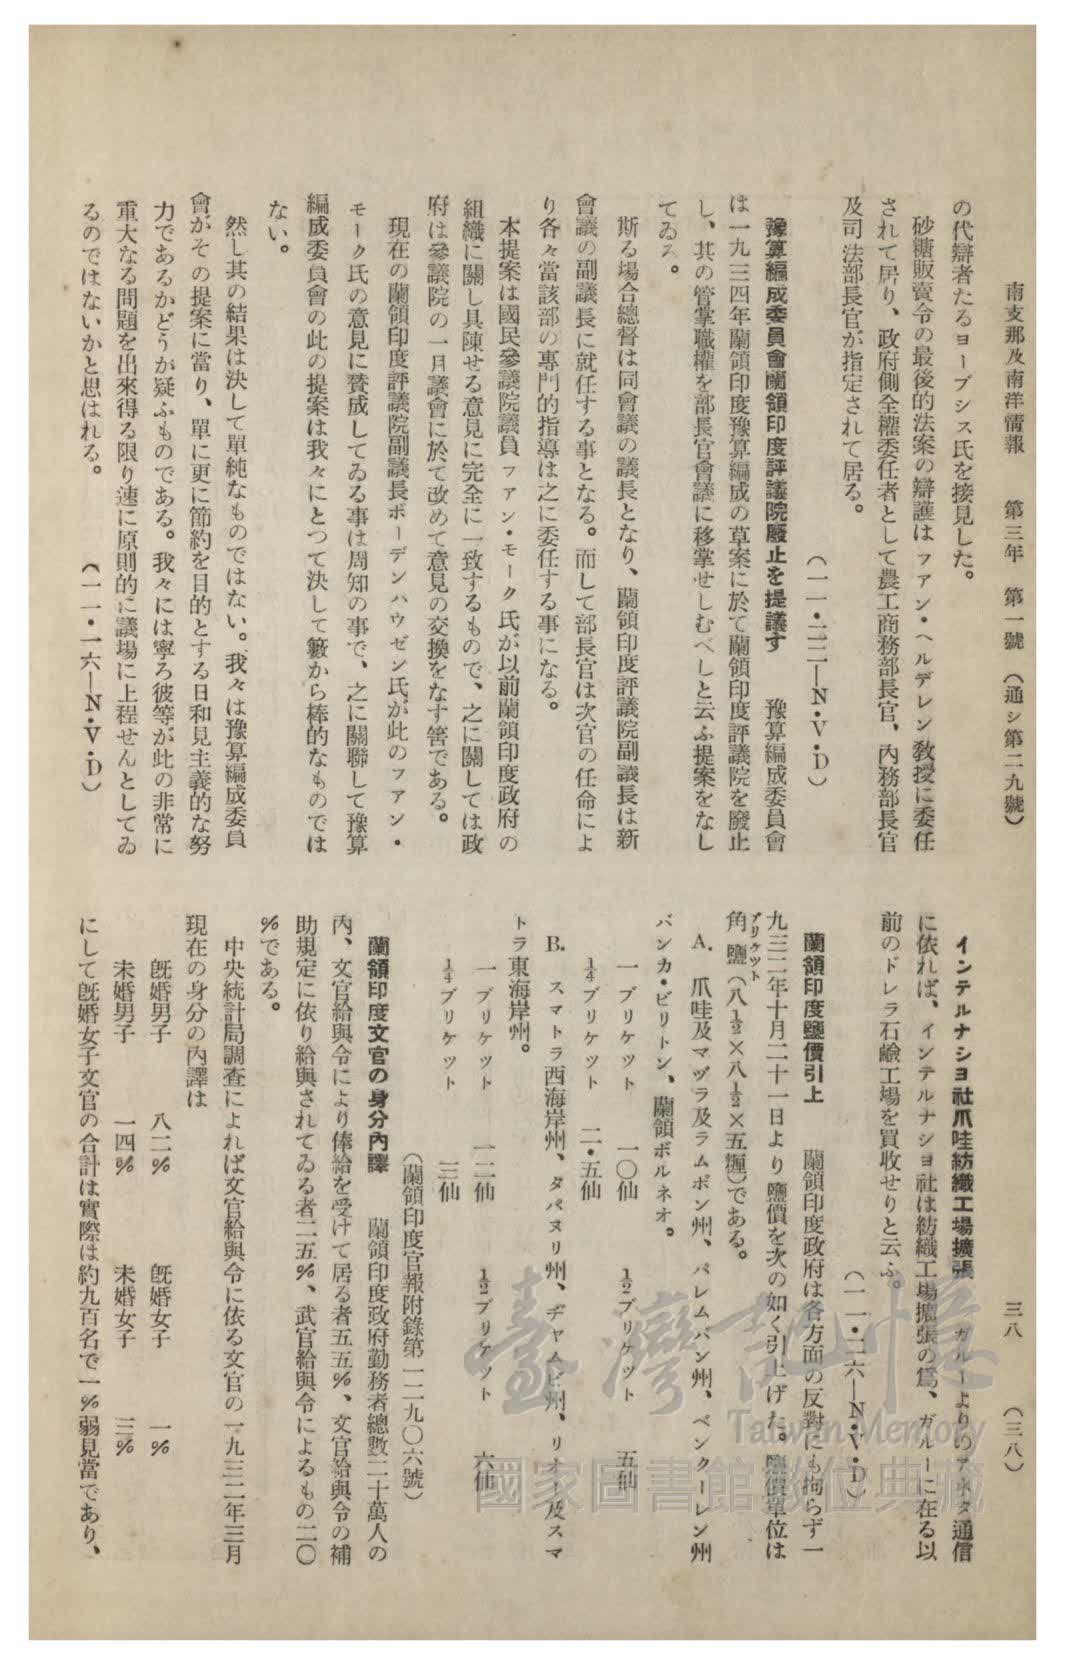 南支那及南洋情報　第三年　第一號　（通シ第二九號）　三八　（三八）
の代辯者たるヨーブシス氏を接見した。
砂糖販賣令の最後的法案の辯護はファン・ヘルデレン教授に委任
されて居り、政府側全權委任者として農工商務部長官、內務部長官
及司法部長官が指定されて居る。
（一一・二二―N・V・D）
豫算編成委員會蘭領印度評議院廢止を提議す　豫算編成委員會
は一九三四年蘭領印度豫算編成の草案に於て蘭領印度評議院を廢止
し、其の管掌職權を部長官會議に移掌せしむべしと云ふ提案をなし
てゐる。
斯る場合總督は同會議の議長となり、蘭領印度評議院副議長は新
會議の副議長に就任する事となる。而して部長官は次官の任命によ
り各々當該部の專門的指導は之に委任する事になる。
本提案は國民參議院議員ファン・モーク氏が以前蘭領印度政府の
組織に關し具陳せる意見に完全に一致するもので、之に關しては政
府は參議院の一月議會に於て改めて意見の交換をなす筈である。
現在の蘭領印度評議院副議長ボーデンハウゼン氏が此のファン・
モーク氏の意見に賛成してゐる事は周知の事で、之に關聯して豫算
編成委員會の此の提案は我々にとつて決して籔から棒的なものでは
ない。
然し其の結果は決して單純なものではない。我々は豫算編成委員
會がその提案に當り、單に更に節約を目的とする日和見主義的な努
力であるかどうが疑ふものである。我々には寧ろ彼等が此の非常に
重大なる問題を出來得る限り速に原則的に議場に上程せんとしてゐ
るのではないかと思はれる。　（一一・一六―N・V・D）
インテルナシヨ社爪哇紡織工場擴張　ガルーよりのアネタ通信
に依れば、インテルナショ社は紡織工場擴張の爲、ガルーに在る以
前のドレラ石鹼工場を買收せりと云ふ。
（一一・二六―N・V・D）
蘭領印度鹽價引上　蘭領印度政府は各方面の反對にも拘らず一
九三二年十月二十一日より鹽價を次の如く引上げた。鹽價單位は
ブリケツト
角鹽（八½×八½×五糎）である。
A.　爪哇及マヅラ及ラムポン州、パレムバン州、ベンクーレン州
バンカ・ビリトン、蘭領ボルネオ。
一ブリケツト　一〇仙　½ブリケツト　五仙
¼ブリケツト　二・五仙
B.　スマトラ西海岸州、タパヌリ州、ヂャムビ州、リオー及スマ
トラ東海岸州。
一ブリケツト　一二仙　½ブリケツト　六仙
¼ブリケツト　三仙
（蘭領印度官報附錄第一二九〇六號）
蘭領印度文官の身分內譯　蘭領印度政府勤務者總數二十萬人の
內、文官給與令により俸給を受けて居る者五五％、文官給與令の補
助規定に依り給與されてゐる者二五％、武官給與令によるもの二〇
％である。
中央統計局調査によれば文官給與令に依る文官の一九三二年三月
現在の身分の內譯は
旣婚男子　八二％　旣婚女子　一％
未婚男子　一四％　未婚女子　三％
にして旣婚女子文官の合計は實際は約九百名で一％弱見當であり、
臺灣記憶
Taiwan Memory
國家圖書館數位典藏